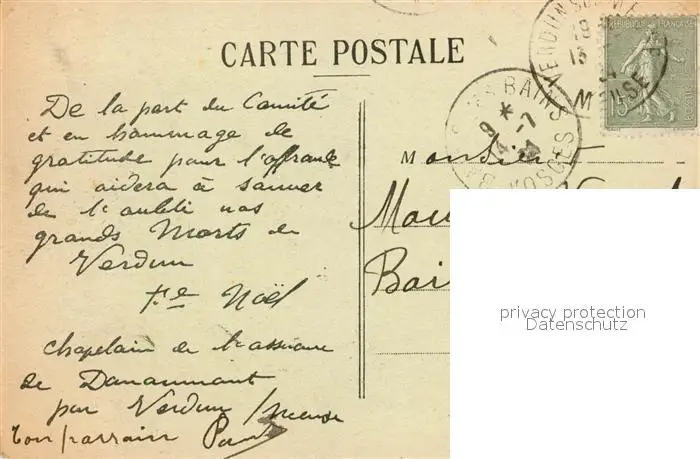 CARTE POSTALE
VERDUN SUR ME
18
13
MEUSE
REPUBLIQUE FRANÇAISE
15
BAINS
9 *
14 - 7
24
VOSGES
De la part du Comité
et en hommage de
gratitude pour l'offrande
qui aidera à sauver
de l'oubli nos
grands Morts de
Verdun
Noël
chapelain de l'ossuaire
de Douaumont
par Verdun / Meuse
Ton parrain Paul
Monsieur
Mau
Bai
privacy protection
Datenschutz